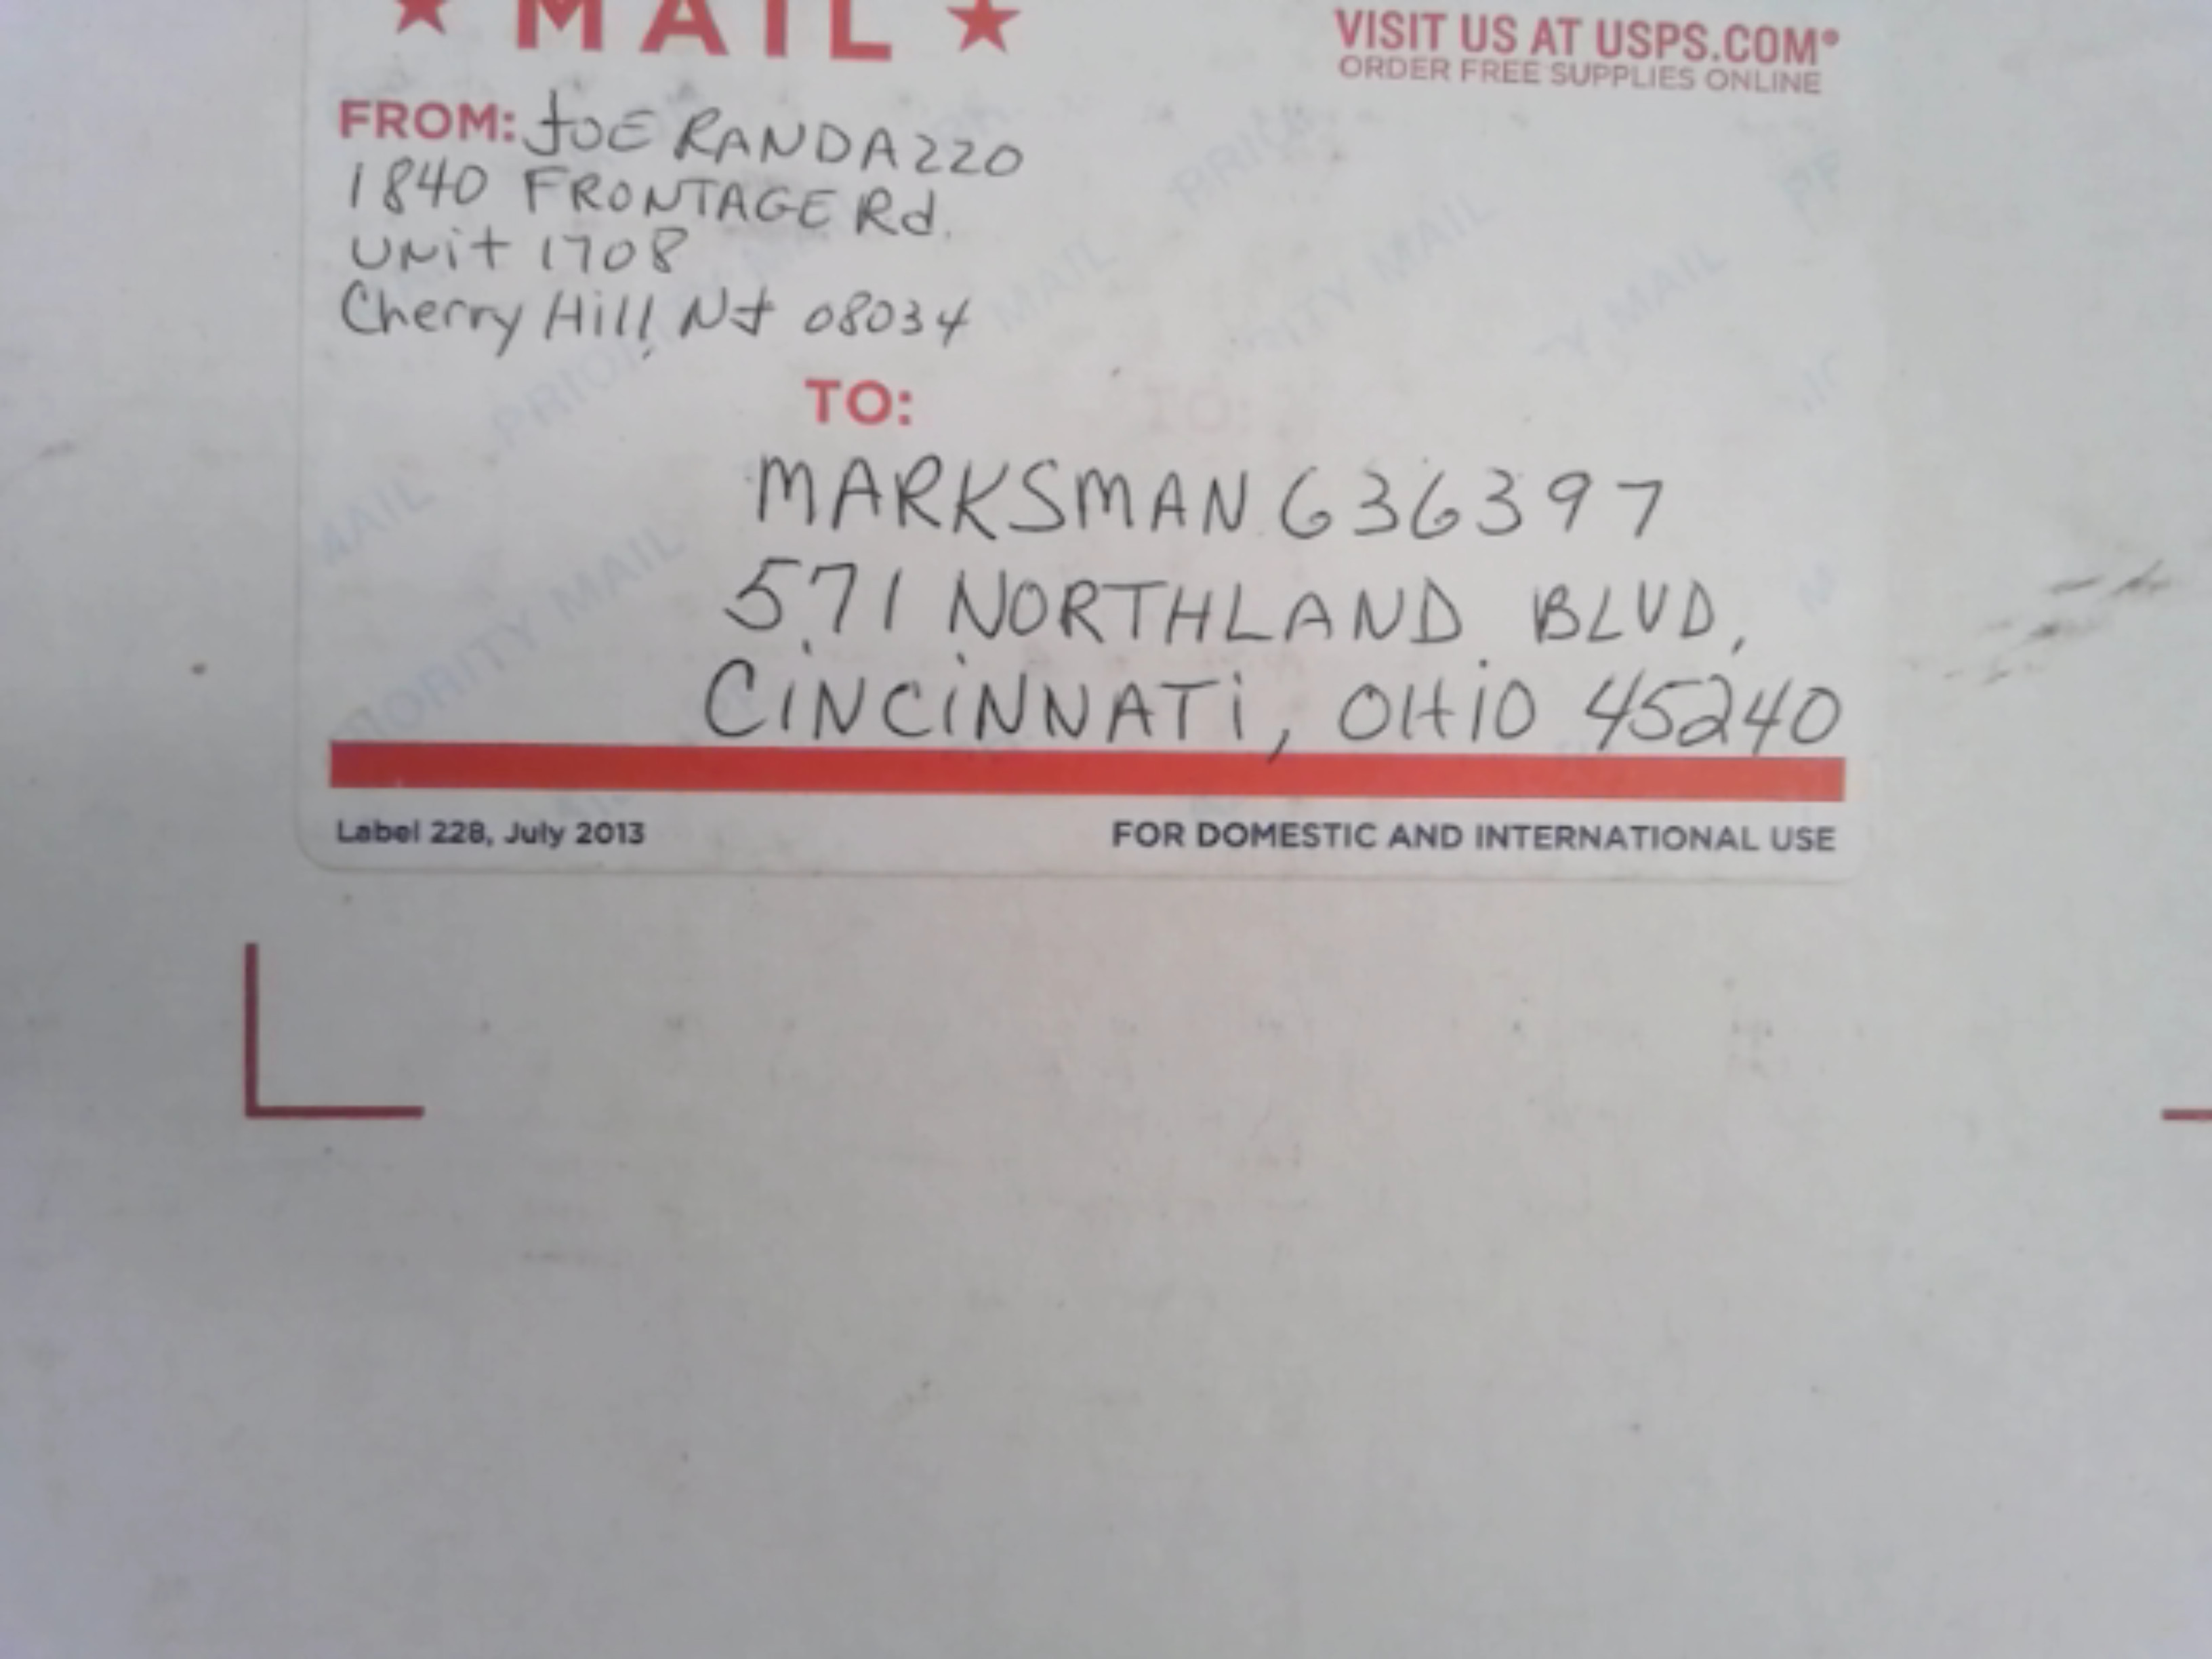 ★ MAIL ★
VISIT US AT USPS.COM®
ORDER FREE SUPPLIES ONLINE
FROM: JOE RANDAZZO
1840 FRONTAGE Rd.
UNit 1708
Cherry Hill, NJ 08034
TO:
MARKSMAN 636397
571 NORTHLAND BLVD,
CiNCiNNATi, OHiO 45240
Label 228, July 2013
FOR DOMESTIC AND INTERNATIONAL USE
PRIORITY MAIL